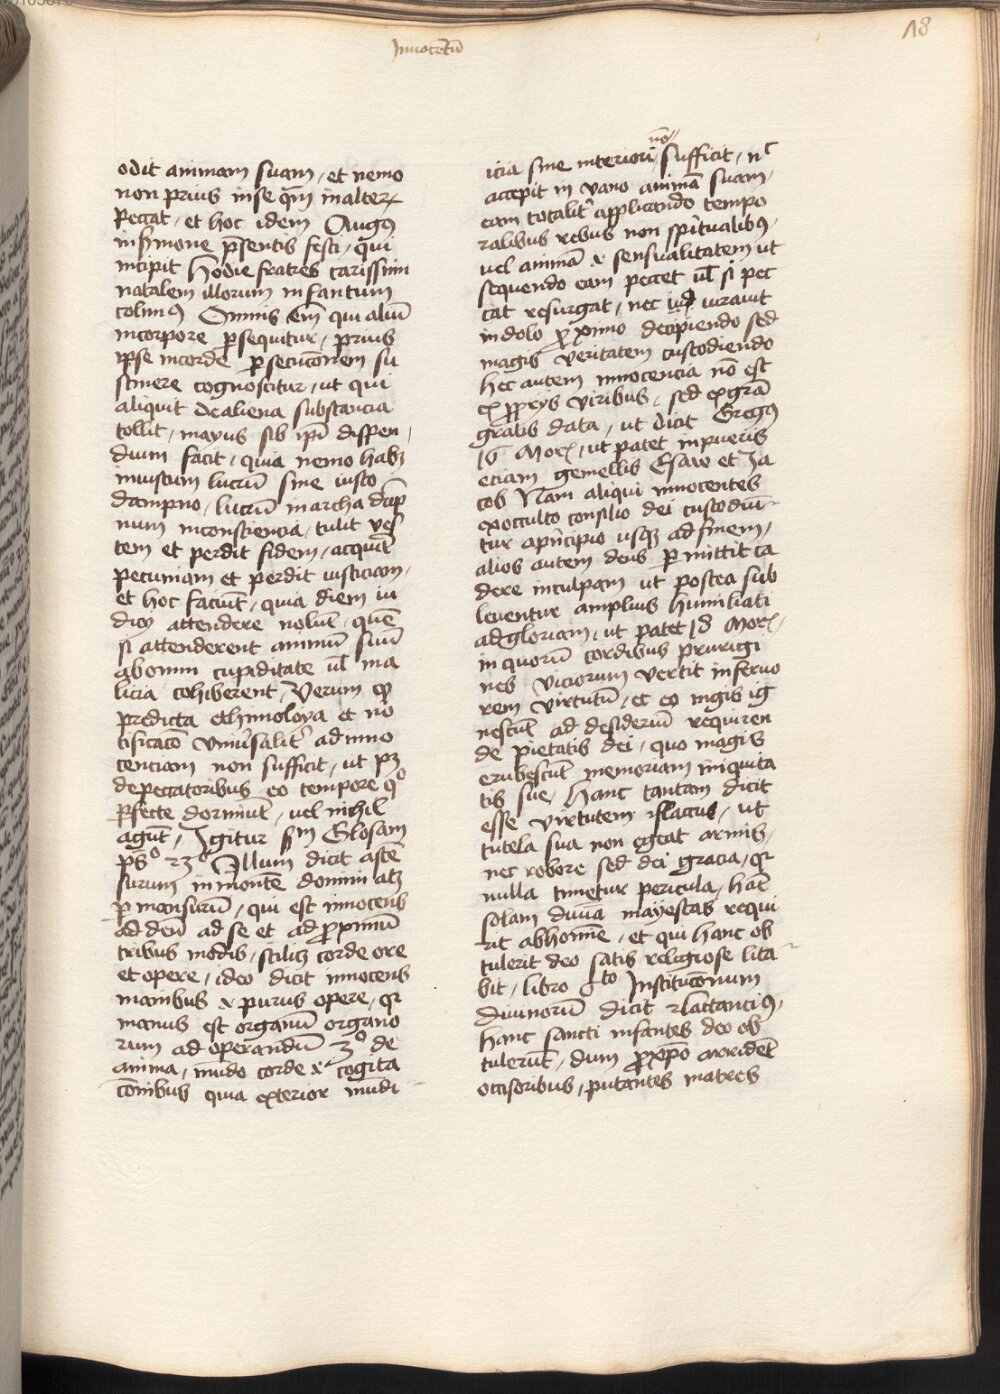 Innocētū
18
odit animam suam / et nemo
non prius in se qm̄ in alterꝝ
peccat / et hoc idem Augꝰ
in s̄mone p̄sentis festi / qui
incipit Hodie fratres carissimi
natalem illorum infantum
colimꝰ Omnis em̄ qui aliū
in corpore ꝑsequitur / prius
ip̄se in corde ꝑsecuc̄onem su
stinere cognoscitur / ut qui
aliquit de aliena substancia
tollit / mayus sib ip̄i dispen
dium facit / quia nemo habꝫ
iniustum lucrū sine iusto
dampno / lucrū in archa dāp
num in consciencia / tulit ves
tem et perdit fidem / acquir̄
pecuniam et perdit iusticiam /
et hoc faciūt / quia diem iu
dicij attendere nolūt / quē
si attenderent animū suū
ab omni cupiditate ul̄ ma
licia cohiberent / Verum qꝫ
predicta ethimoloya et no
tificac̄o univ̄salit̄ ad inno
cenciam non sufficit / ut pꝫ
de peccatoribus eo tempore qͦ
ꝑfecte dormiūt / vel nichil
agūt / Igitur s̄m Glosam
ps̄ͦ 23ͦ Illum dicit ascē
surum in montē domini atqꝫ
ꝑmansurū / qui est innocens
ad deū ad se et ad ꝓximū
tribus modis / scilicꝫ corde ore
et opere / ideo dicit innocens
manibus & purus opere / qꝛ
manus est organū organo
rum ad operandū 3ͦ de
anima / mūdo corde & cogita
c̄onibus quia exterior mūdi
icia sine interiori nō sufficit / nͨ
accepit in vano animā suam /
eam totalit̄ applicando tempo
ralibus rebus non spūalibꝰ /
vel animā & sensualitatem ut
sequendo eam peccet ul̄ si pec
cat resurgat / nec iuravit
in dolo ꝓximo decipiendo sed
magis veritatem custodiendo
hec autem innocencia nō est
ex ꝓprijs viribus / sed ex grā
gratis data / ut dicit Gregꝰ
16 Morꝭ / ut patet in pueris
eciam gemellis Esaw et Ja
cob Nam aliqui innocentes
ex occulto consilio dei custodiū
tur a p̄ncipio usqꝫ ad finem /
alios autem deus ꝑmittit ca
dere in culpam ut postea sub
leventur amplius humiliati
ad gloriam / ut patet 18 Morꝭ /
in quorū cordibus prurigi
nes viciorum vertit in fervo
rem virtutū / et eo magis ig
nescūt ad desideriū requiren
de pietatis dei / quo magis
erubescūt memoriam iniquita
tis sue / Hanc tantam dicit
esse virtutem flaccus / ut
tutela sua non egeat armis /
nec robore sed dei gracia / qꝛ
nulla timetur pericula / hāc
solam divīa mayestas requi
rit ab homīe / et qui hanc ob
tulerit deo satis religiose lita
bit / libro 6to Instituc̄onum
divinorū dicit Lactanciꝰ /
hanc sancti infantes deo ob
tulerūt / dum ꝓ xp̄o arridēt
occisoribus / putantes matres